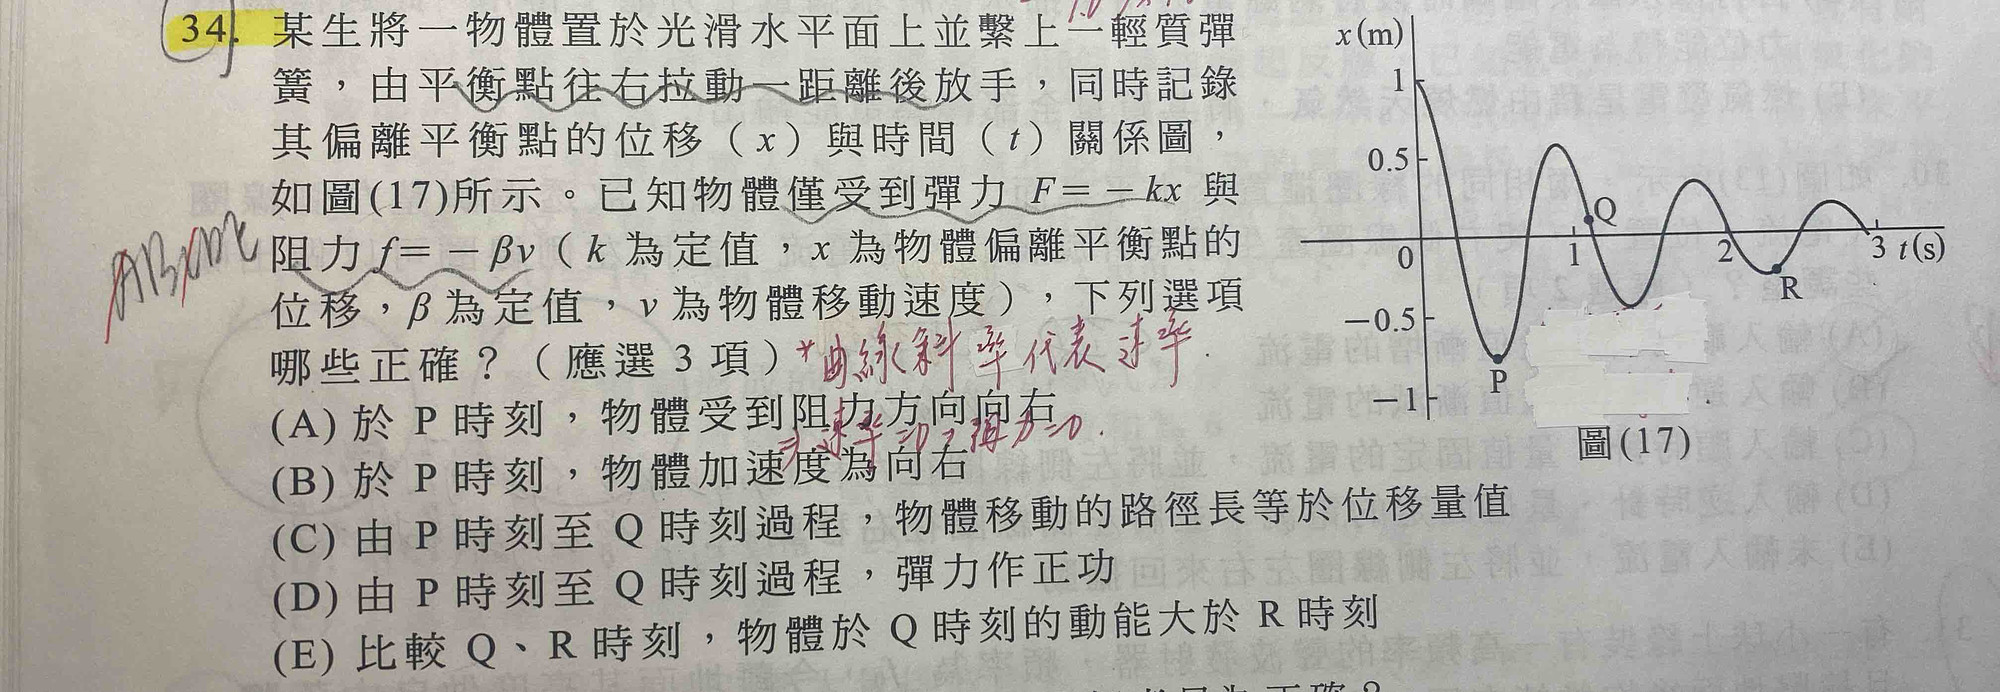 34. 某生將一物體置於光滑水平面上並繫上一輕質彈
簧，由平衡點往右拉動一距離後放手，同時記錄
其偏離平衡點的位移（x）與時間（t）關係圖，
如圖(17)所示。已知物體僅受到彈力 F=－kx 與
阻力 f=－βv（k 為定值，x 為物體偏離平衡點的
位移，β 為定值，v 為物體移動速度），下列選項
哪些正確？（應選 3 項）
曲線斜率代表速率
(A) 於 P 時刻，物體受到阻力方向向右
(B) 於 P 時刻，物體加速度為向右
(C) 由 P 時刻至 Q 時刻過程，物體移動的路徑長等於位移量值
(D) 由 P 時刻至 Q 時刻過程，彈力作正功
(E) 比較 Q、R 時刻，物體於 Q 時刻的動能大於 R 時刻
x(m)
1
0.5
0
－0.5
－1
1
2
3
t(s)
P
Q
R
圖(17)